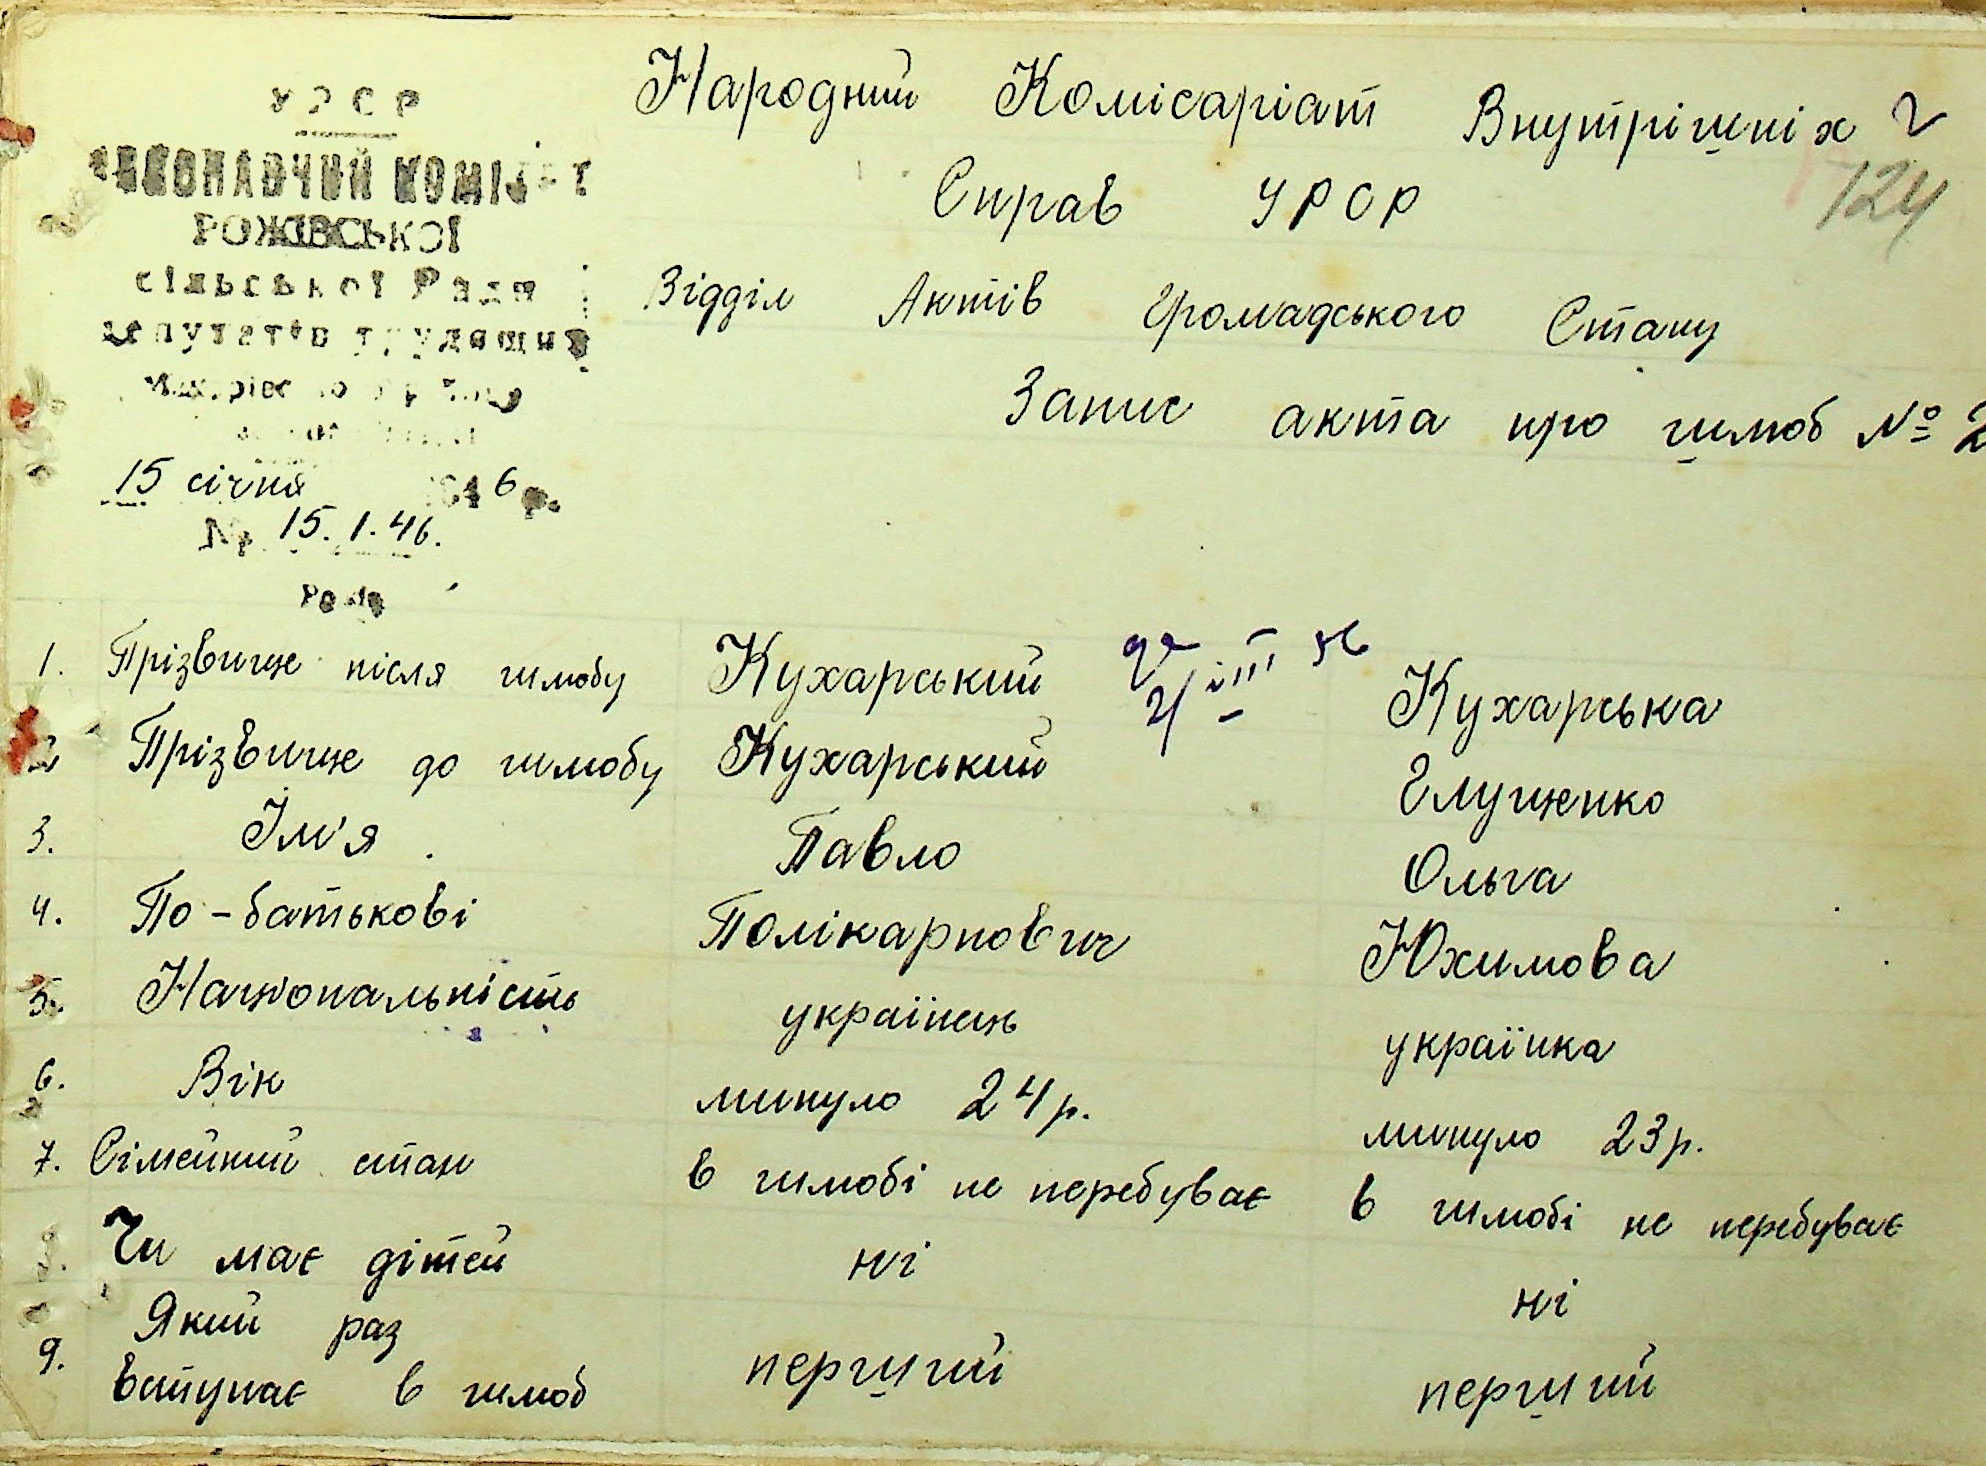 УРСР
ВИКОНАВЧИЙ КОМІТЕТ
РОЖІВСЬКОЇ
сільської Ради
депутатів трудящих
15 січня 1946 р.
№ 15.1.46.
Народний Комісаріат Внутрішніх
124
Справ УРСР
Відділ Актів Громадського Стану
Запис акта про шлюб № 2
1. Прізвище після шлюбу Кухарський Кухарська
2 Прізвище до шлюбу Кухарський Глущенко
3. Їм'я. Павло Ольга
4. По-батькові Полікарпович Юхимова
5. Національність українець українка
6. Вік минуло 24 р. минуло 23 р.
7. Сімейний стан в шлюбі не перебуває в шлюбі не перебуває
8. Чи має дітей ні ні
9. Який раз
вступає в шлюб перший перший